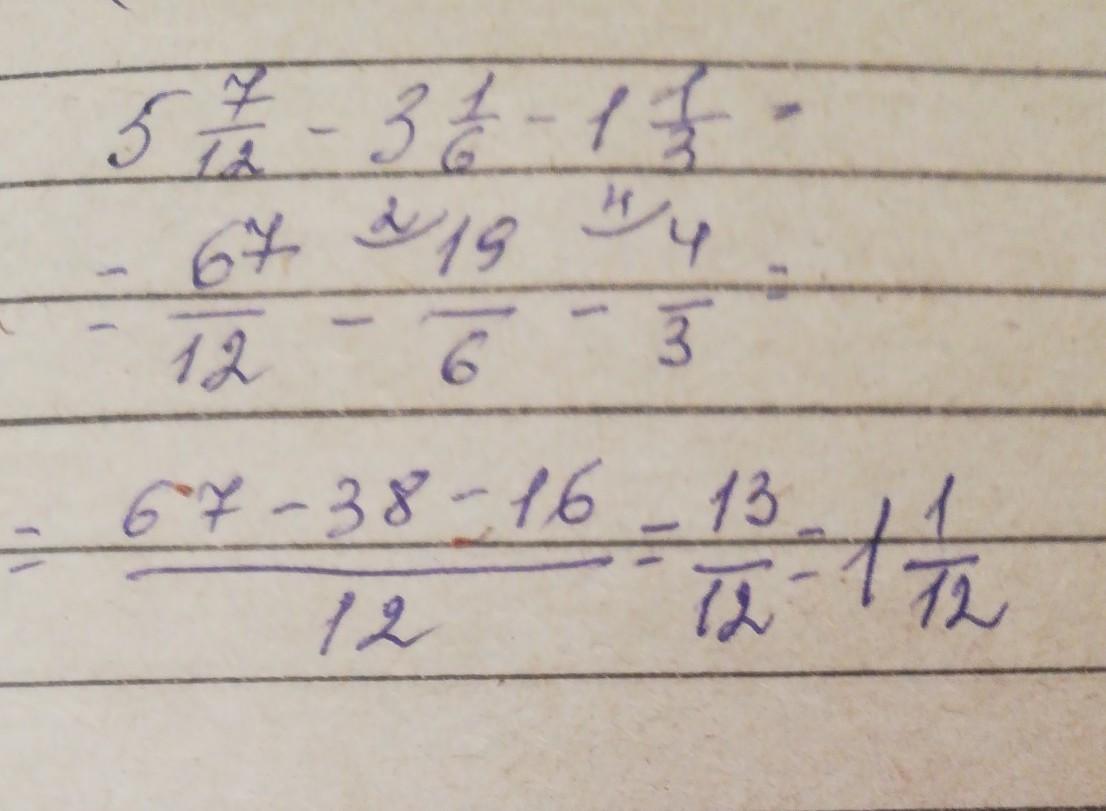 5 7/12 - 3 1/6 - 1 1/3 =
= 67/12 - 2/ 19/6 - 4/ 4/3 =
= (67 - 38 - 16)/12 = 13/12 = 1 1/12